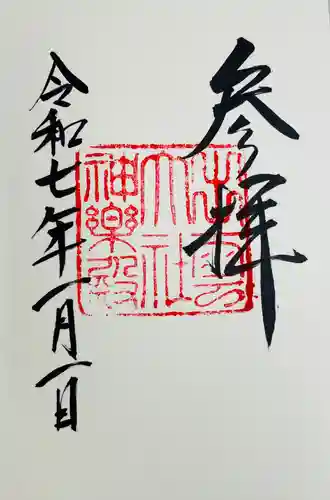 参拝
出雲
大社
神樂殿
令和七年一月一日